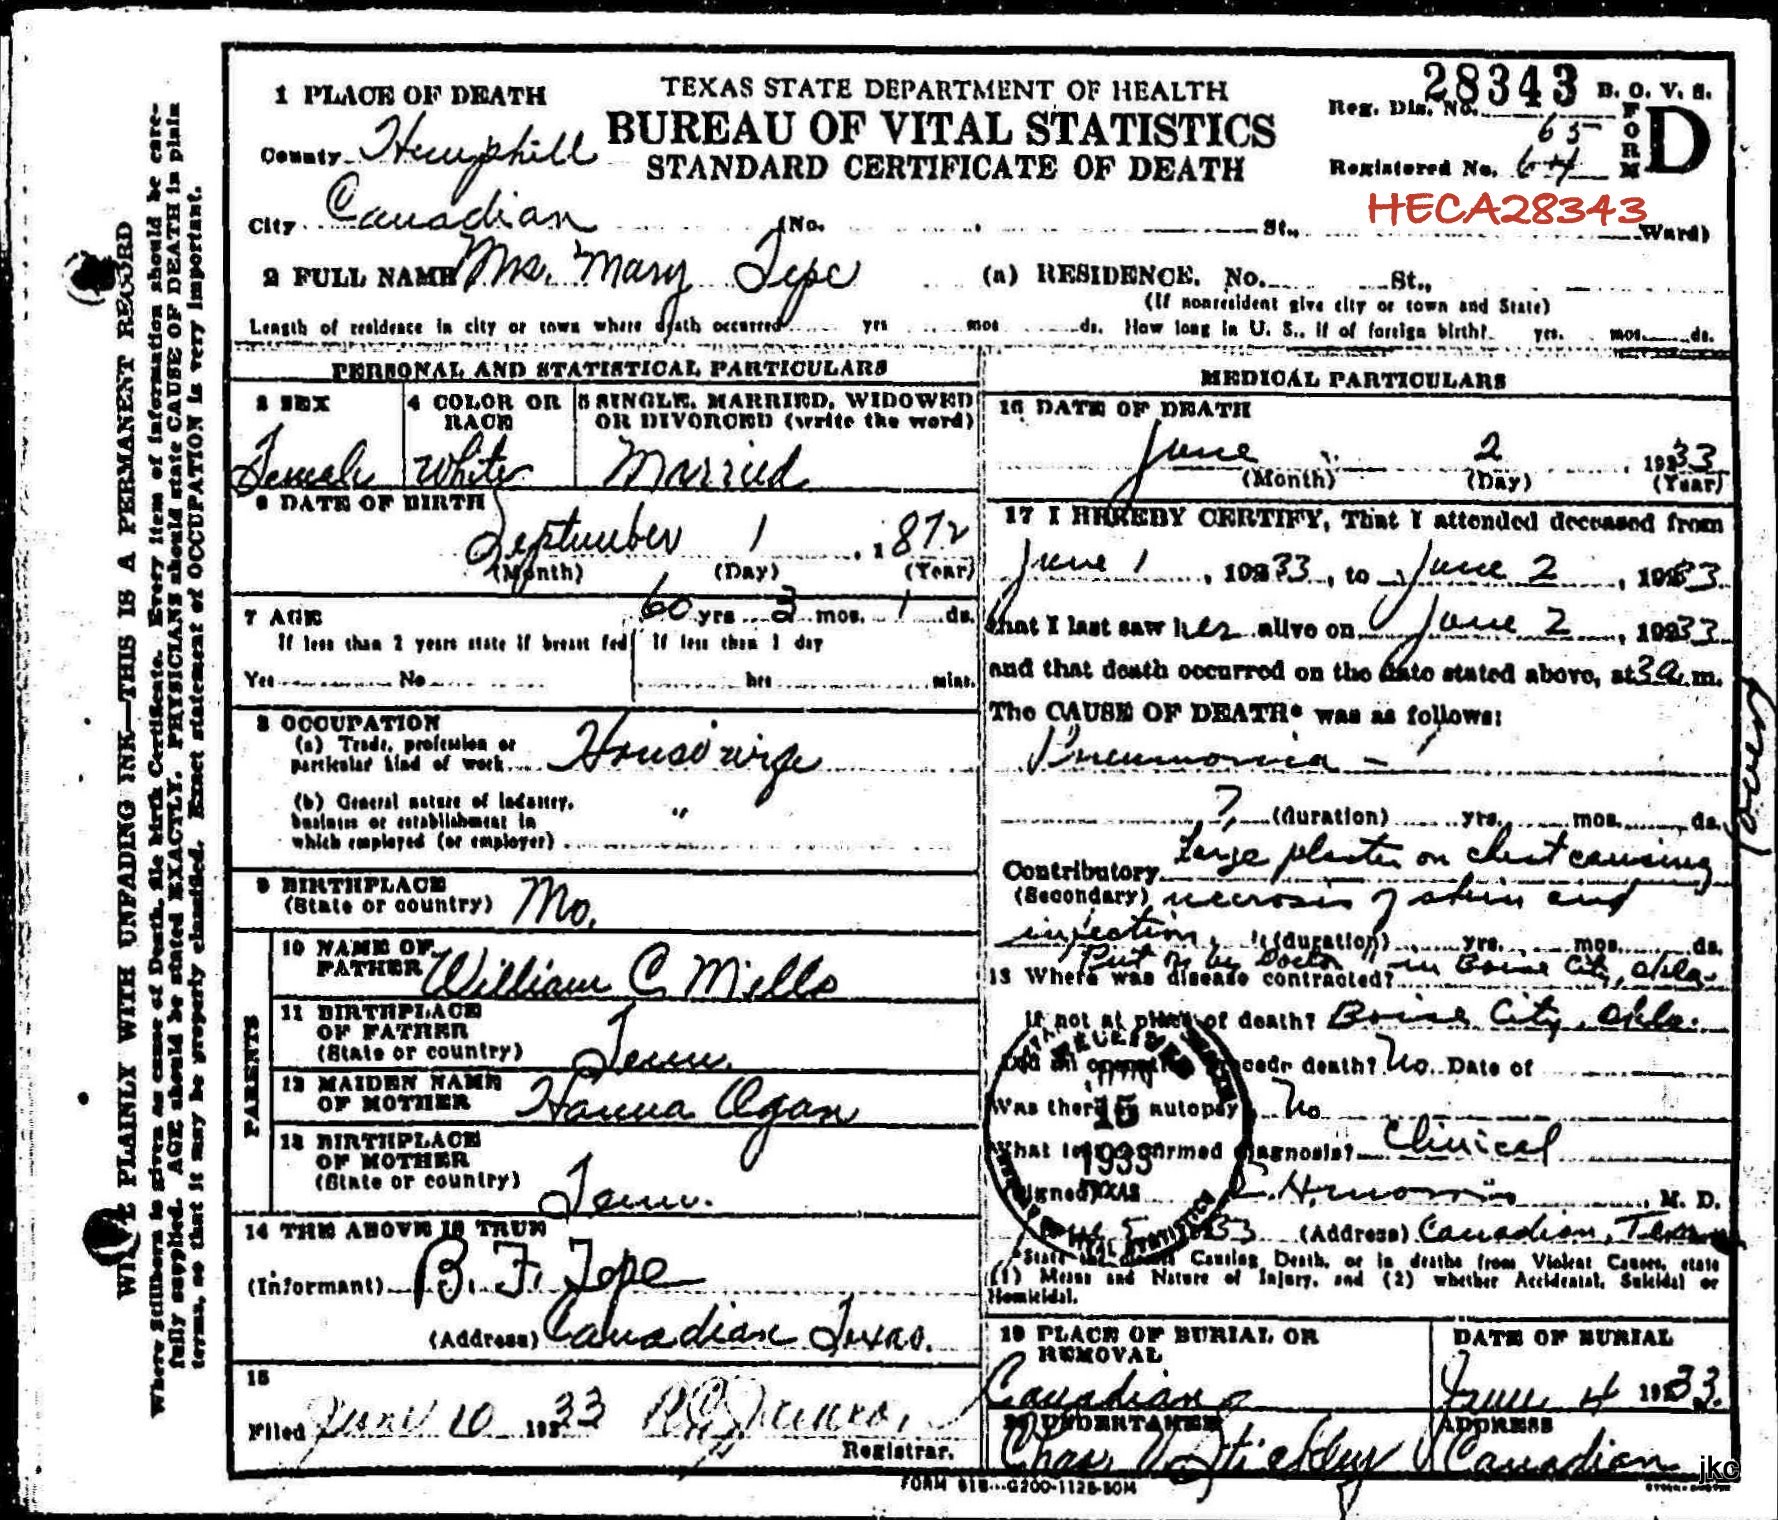 28343 B. O. V. S.
TEXAS STATE DEPARTMENT OF HEALTH
BUREAU OF VITAL STATISTICS
STANDARD CERTIFICATE OF DEATH
Reg. Dis. No.
65
Registered No. 64
FORM D
HECA28343
1 PLACE OF DEATH
County Hemphill
City Canadian (No. St., Ward)
2 FULL NAME Mrs. Mary Tepe (a) RESIDENCE. No. St.,
(If nonresident give city or town and State)
Length of residence in city or town where death occurred yrs mos ds. How long in U. S., if of foreign birth? yrs. mos. ds.
PERSONAL AND STATISTICAL PARTICULARS
3 SEX
Female
4 COLOR OR RACE
White
5 SINGLE, MARRIED, WIDOWED
OR DIVORCED (write the word)
Married
6 DATE OF BIRTH
September 1, 1872
(Month) (Day) (Year)
7 AGE 60 yrs 3 mos. 1 ds.
If less than 2 years state if breast fed If less than 1 day
Yes No hrs mins.
8 OCCUPATION
(a) Trade, profession or
particular kind of work Housewife
(b) General nature of Industry,
business or establishment in "
which employed (or employer)
9 BIRTHPLACE
(State or country) Mo.
PARENTS
10 NAME OF
FATHER William C Mills
11 BIRTHPLACE
OF FATHER
(State or country) Tenn.
12 MAIDEN NAME
OF MOTHER Hanna Ogan
13 BIRTHPLACE
OF MOTHER
(State or country) Tenn.
14 THE ABOVE IS TRUE
(Informant) B. F. Tepe
(Address) Canadian Texas.
15
Filed June 10 1933
Registrar.
MEDICAL PARTICULARS
16 DATE OF DEATH
June 2 1933
(Month) (Day) (Year)
17 I HEREBY CERTIFY, That I attended deceased from
June 1, 1933, to June 2, 1933
that I last saw her alive on June 2, 1933
and that death occurred on the date stated above, at 3 a.m.
The CAUSE OF DEATH* was as follows:
Pneumonia -
? (duration) yrs. mos. ds.
Contributory Large plaster on chest causing
(Secondary) necrosis of skin and
infection. (duration) yrs. mos. ds.
Put on by Doctor in Boise City, Okla.
18 Where was disease contracted?
If not at place of death? Boise City, Okla.
Did an operation precede death? No. Date of
Was there autopsy No
What test confirmed diagnosis? Clinical
(Signed) M. D.
June 5 33 (Address) Canadian, Texas
*State the disease Causing Death, or in deaths from Violent Causes, state
(1) Means and Nature of Injury, and (2) whether Accidental, Suicidal or
Homicidal.
RECEIVED
15
1933
TEXAS
VITAL STATISTICS
19 PLACE OF BURIAL OR
REMOVAL
Canadian
DATE OF BURIAL
June 4 1933.
20 UNDERTAKER
Chas. V. Stickley
ADDRESS
Canadian
FORM 61B---G200-1128-50M
jkc
WRITE PLAINLY WITH UNFADING INK—THIS IS A PERMANENT RECORD
Where Stillborn is given as cause of Death, file birth Certificate. Every item of information should be care-
fully supplied. AGE should be stated EXACTLY. PHYSICIANS should state CAUSE OF DEATH in plain
terms, so that it may be properly classified. Exact statement of OCCUPATION is very important.